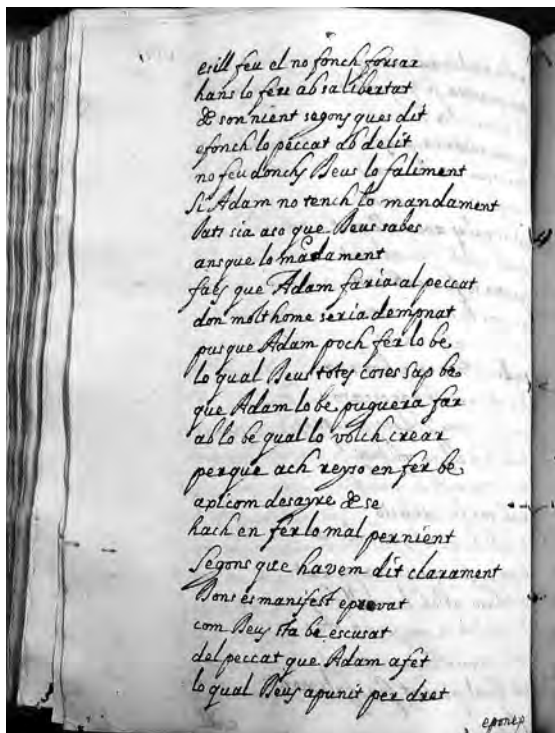 esill feu el no fonch forsar
hans lo feu ab sa libertat
& son nient segons ques dit
e fonch lo peccat ab delit
no feu donchs Deus lo faliment
Si Adam no tench lo mandament
Bats sia aso que Deus sabes
ans que lo mãdament
faes que Adam faria al peccat
don molt home seria dempnat
pus que Adam poch fer lo be
lo qual Deus totes coses sap be
que Adam lo be puguera far
ab lo be qual lo volch crear
perque ach reyso en fer be
axi com desayre & se
hach en fer lo mal per nient
Segons que havem dit clarament
Dons es manifest e provat
com Deus sta be escusat
del peccat que Adam a fet
lo qual Deus a punit per dret